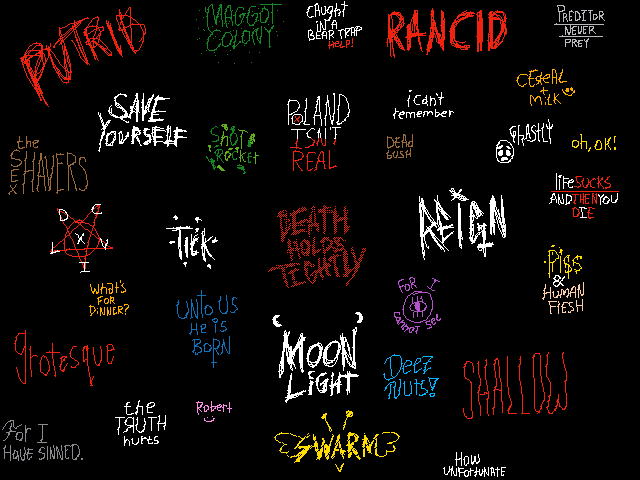 PUTRID
MAGGOT
COLONY
CAUGHT
IN A
BEAR TRAP
HELP!
RANCID
PREDITOR
NEVER
PREY
CEREAL
+
MILK
SAVE
YOURSELF
SNOT
ROCKET
POLAND
ISN'T
REAL
i CAN'T
remember
DEAD
BUSH
GHASTLY
oh, OK!
the
SEX
SHAVERS
life SUCKS
AND THEN YOU
DIE
D C
L X V
I
TICK
DEATH
HOLDS
TIGHTLY
REIGN
PISS
&
HUMAN
FLESH
WHAT'S
FOR
DiNNER?
UNTO US
He is
BORN
FOR I
CANNOT See
grotesque
MOON
LiGHT
DeeZ
NUTS!
SHALLOW
For I
HAVE SINNED.
the
TRUTH
hurts
Robert
SWARM
HOW
UNFORTUNATE